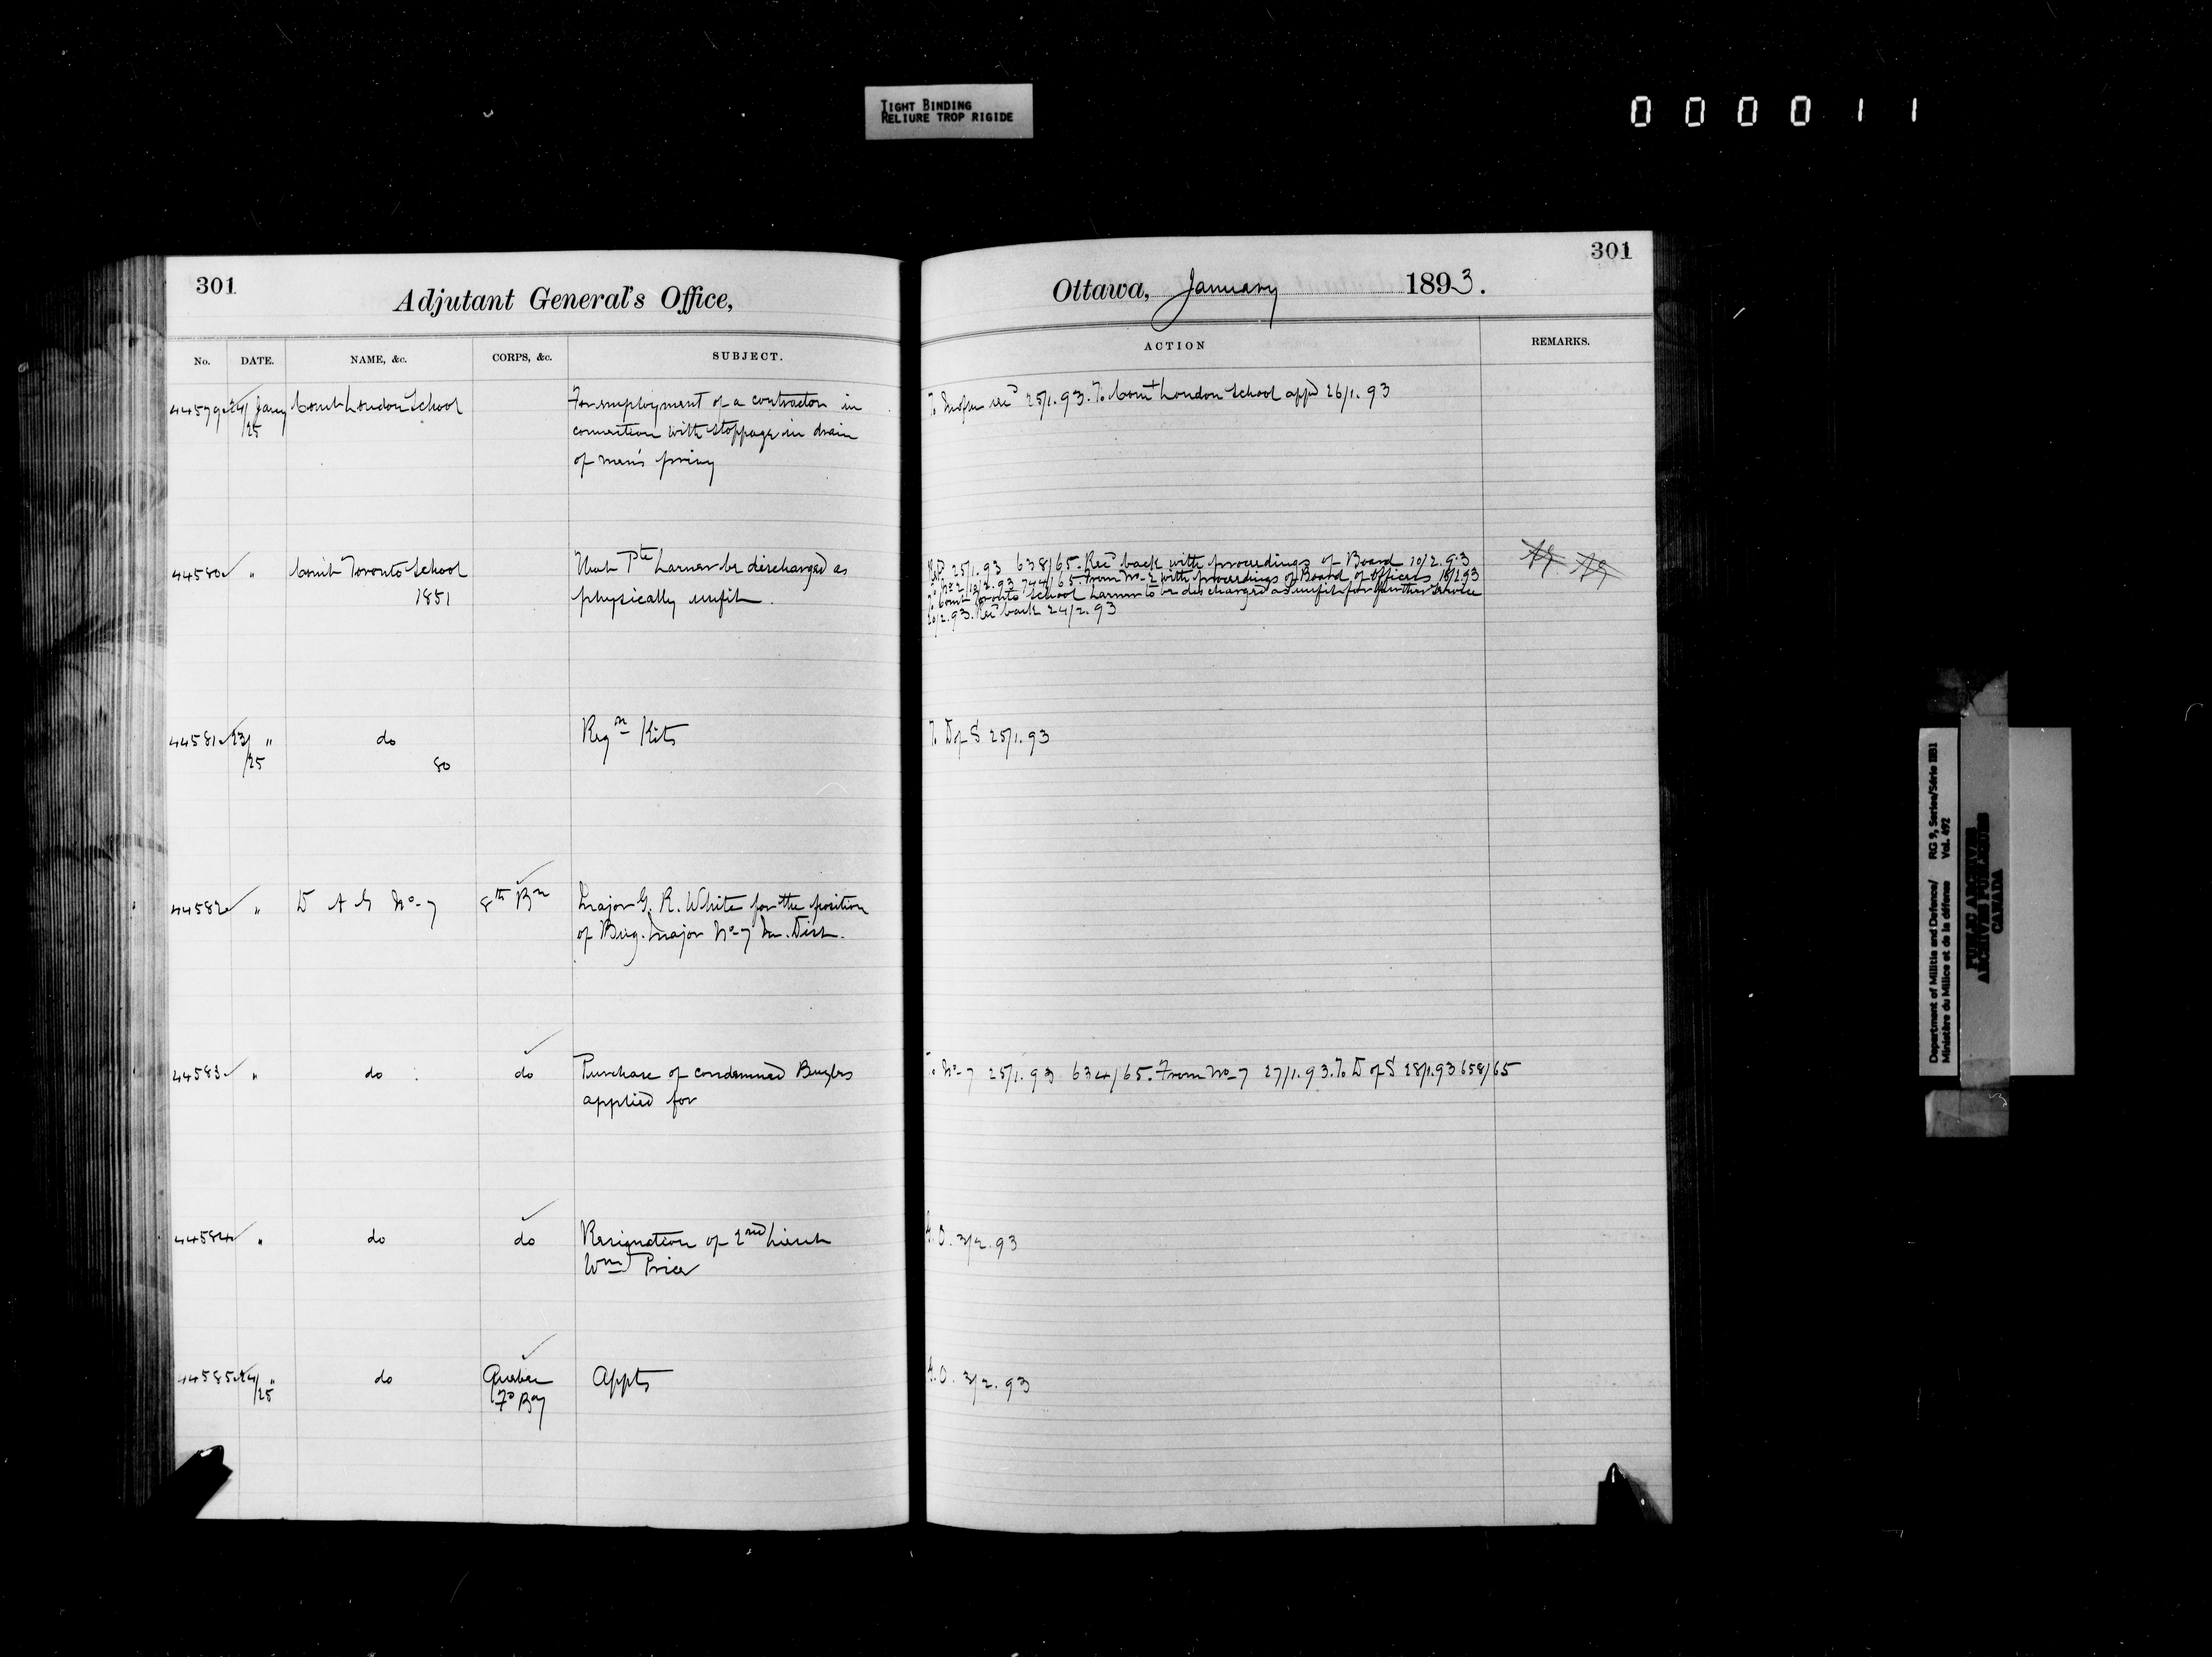 TIGHT BINDING
RELIURE TROP RIGIDE
000011
301
Adjutant General's Office,
No. DATE. NAME, &c. CORPS, &c. SUBJECT.
44579 24/25 Jany Comt London School For employment of a contractor in
connection with stoppage in drain
of men's privy
44580 " Comt Toronto School That Pte Larner be discharged as
1851 physically unfit.
44581 23/25 " do Regn Kits
80
44582 " D A G No 7 8th Bn Major G. R. White for the position
of Brig. Major No 7 M. Dist.
44583 " do do Purchase of condemned Bugles
applied for
44584 " do do Resignation of 2nd Lieut
Wm Price
44585 24/25 " do Quebec Appts
Fd By
301
Ottawa, January 1893.
ACTION REMARKS.
25/1.93. To Comt London School appd 26/1.93
25/1.93 638/65. Recd back with proceedings of Board 10/2.93
To No 2 13/2.93 744/65. From No 2 with proceedings of Board of Officers 18/2.93
To Comt Toronto School Larner to be discharged as unfit for further service
20/2.93. Recd back 24/2.93
To D of S 25/1.93
To No 7 25/1.93 634/65. From No 7 27/1.93. To D of S 28/1.93 658/65
G.O. 3/2.93
G.O. 3/2.93
Department of Militia and Defence/ RG 9, Series/Série IIB1
Ministère du Milice et de la défense Vol. 492
PUBLIC ARCHIVES
ARCHIVES PUBLIQUES
CANADA